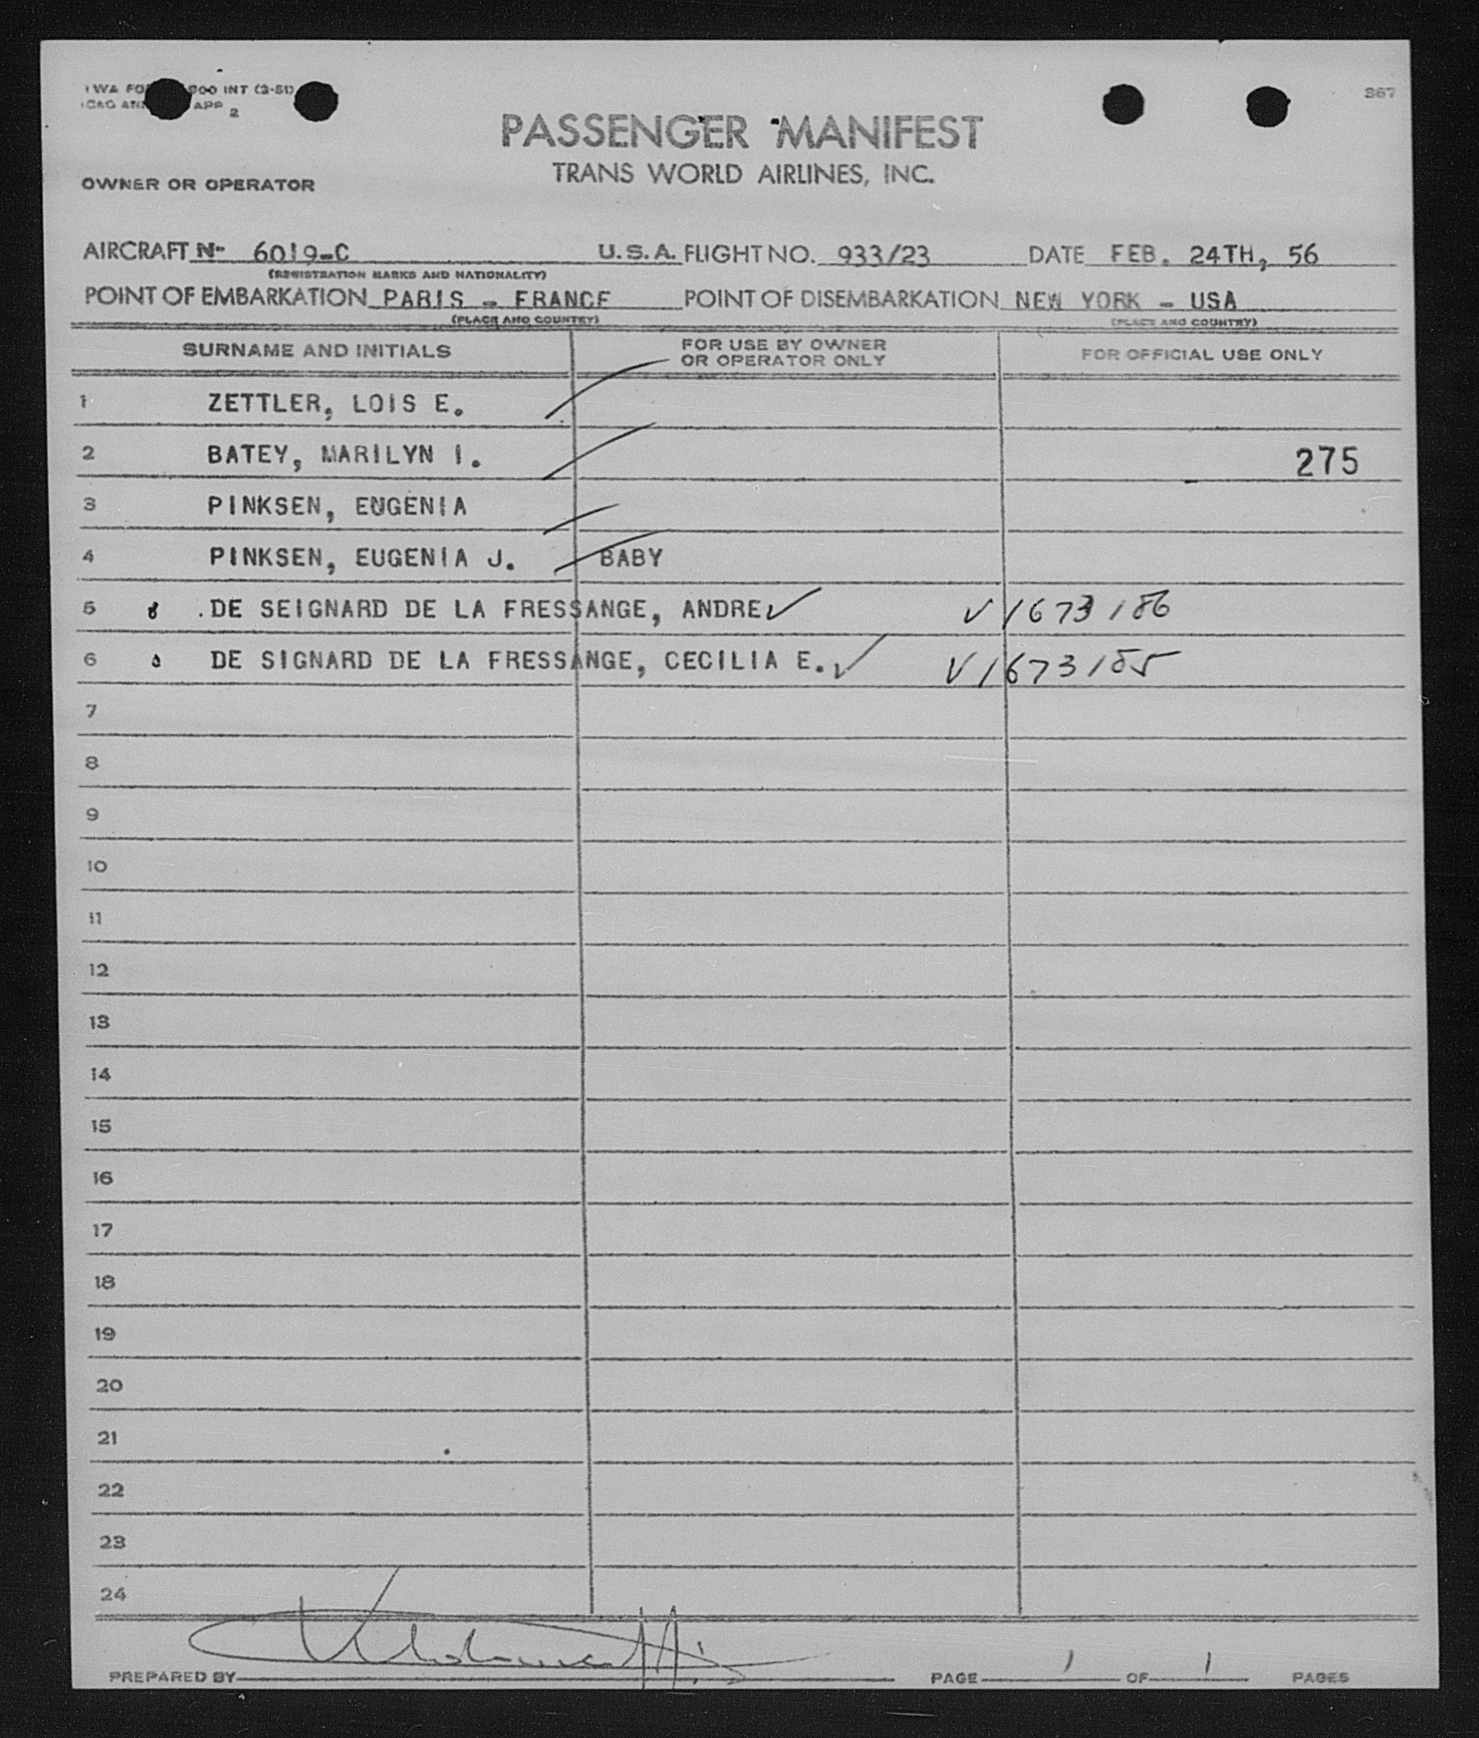 INT (3-51)
367
APP 2
PASSENGER MANIFEST
TRANS WORLD AIRLINES, INC.
OWNER OR OPERATOR
AIRCRAFT Nº 6019-C U.S.A. FLIGHT NO. 933/23 DATE FEB. 24TH, 56
(REGISTRATION MARKS AND NATIONALITY)
POINT OF EMBARKATION PARIS - FRANCE POINT OF DISEMBARKATION NEW YORK - USA
(PLACE AND COUNTRY) (PLACE AND COUNTRY)
SURNAME AND INITIALS FOR USE BY OWNER OR OPERATOR ONLY FOR OFFICIAL USE ONLY
1 ZETTLER, LOIS E.
2 BATEY, MARILYN I. 275
3 PINKSEN, EUGENIA
4 PINKSEN, EUGENIA J. BABY
5 DE SEIGNARD DE LA FRESSANGE, ANDRE ✓ V1673186
6 DE SIGNARD DE LA FRESSANGE, CECILIA E. ✓ V1673185
7
8
9
10
11
12
13
14
15
16
17
18
19
20
21
22
23
24
PREPARED BY PAGE 1 OF 1 PAGES